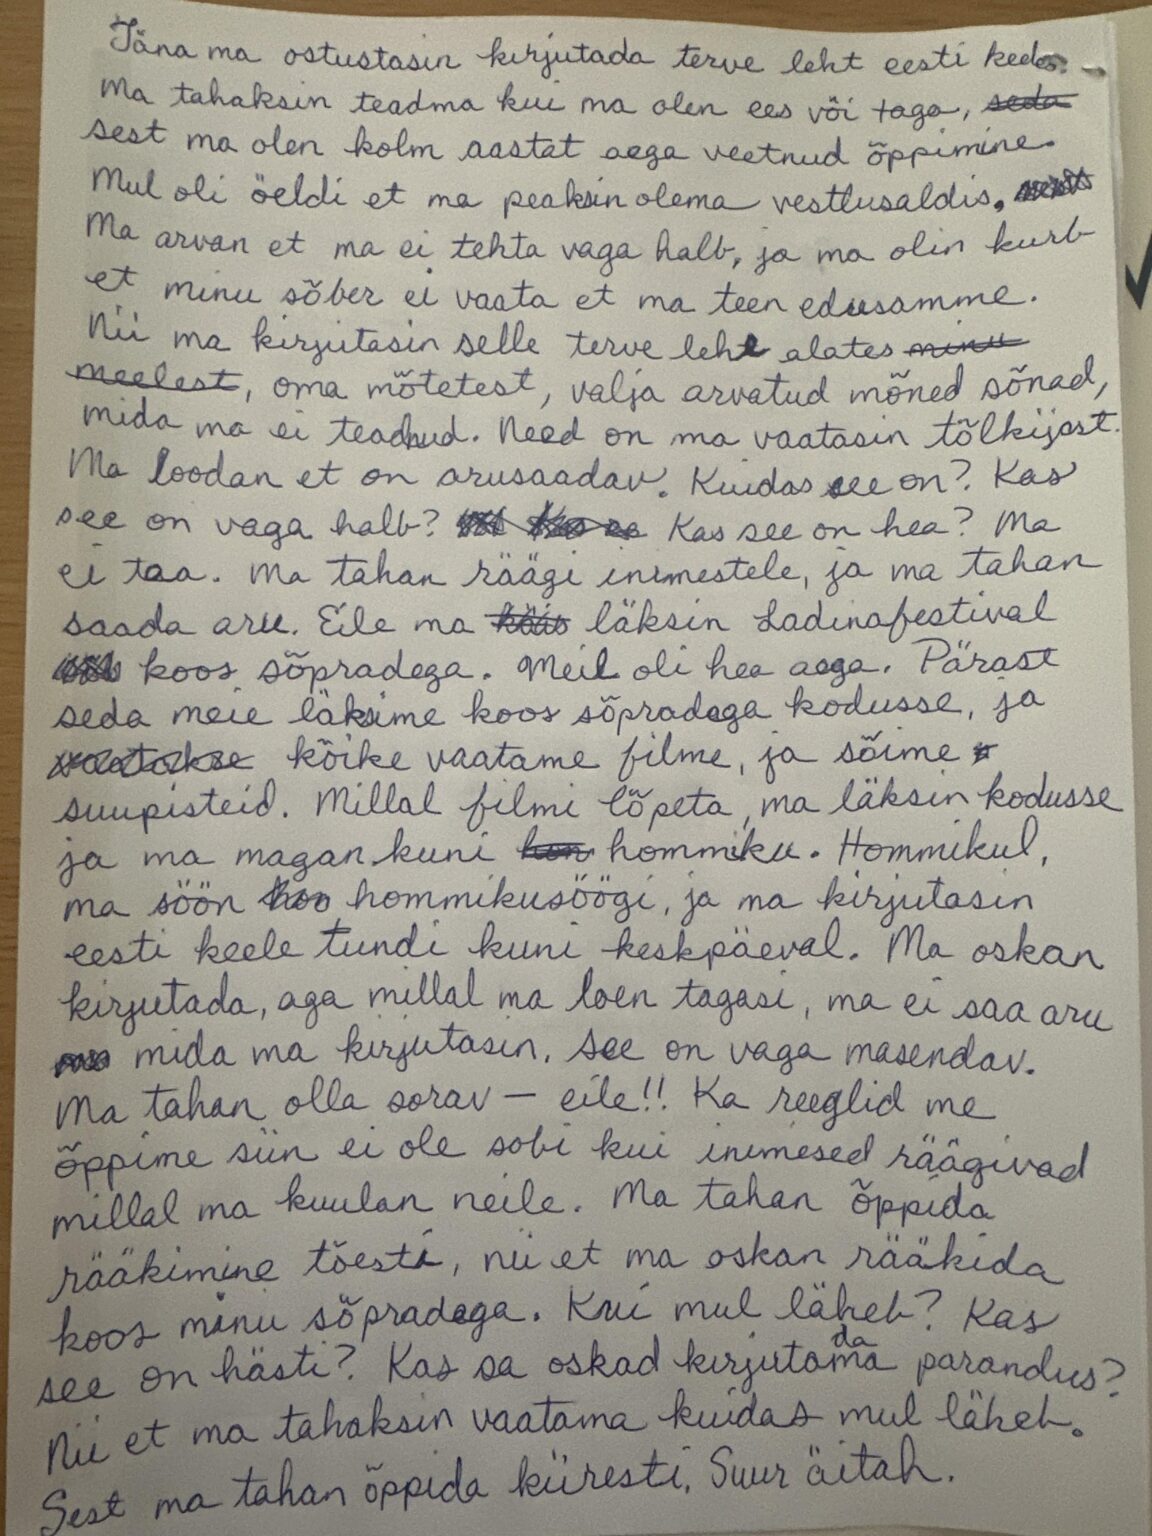 Täna ma ostustasin kirjutada terve leht eesti keeles.
Ma tahaksin teadma kui ma olen ees või taga, seda
sest ma olen kolm aastat aega veetnud õppimine.
Mul oli öeldi et ma peaksin olema vestlusaldis.
Ma arvan et ma ei tehta vaga halb, ja ma olin kurb
et minu sõber ei vaata et ma teen edusamme.
Nii ma kirjutasin selle terve leht alates minu
meelest, oma mõtetest, valja arvatud mõned sõnad,
mida ma ei teadnud. Need on ma vaatasin tõlkijast.
Ma loodan et on arusaadav. Kuidas see on? Kas
see on vaga halb? Kas see on hea? Ma
ei taa. Ma tahan räägi inimestele, ja ma tahan
saada aru. Eile ma käis läksin Ladinafestival
koos sõpradega. Meil oli hea aega. Pärast
seda meie läksime koos sõpradega kodusse, ja
vaatakse kõike vaatame filme, ja sõime
suupisteid. Millal filmi lõpeta, ma läksin kodusse
ja ma magan kuni hon hommiku. Hommikul,
ma söön hoo hommikusöögi, ja ma kirjutasin
eesti keele tundi kuni keskpäeval. Ma oskan
kirjutada, aga millal ma loen tagasi, ma ei saa aru
mida ma kirjutasin. See on vaga masendav.
Ma tahan olla sorav – eile!! Ka reeglid me
õppime siin ei ole sobi kui inimesed räägivad
millal ma kuulan neile. Ma tahan õppida
rääkimine tõesti, nii et ma oskan rääkida
koos minu sõpradega. Kui mul läheb? Kas
see on hästi? Kas sa oskad kirjutama da parandus?
Nii et ma tahaksin vaatama kuidas mul läheb.
Sest ma tahan õppida kiiresti. Suur äitah.